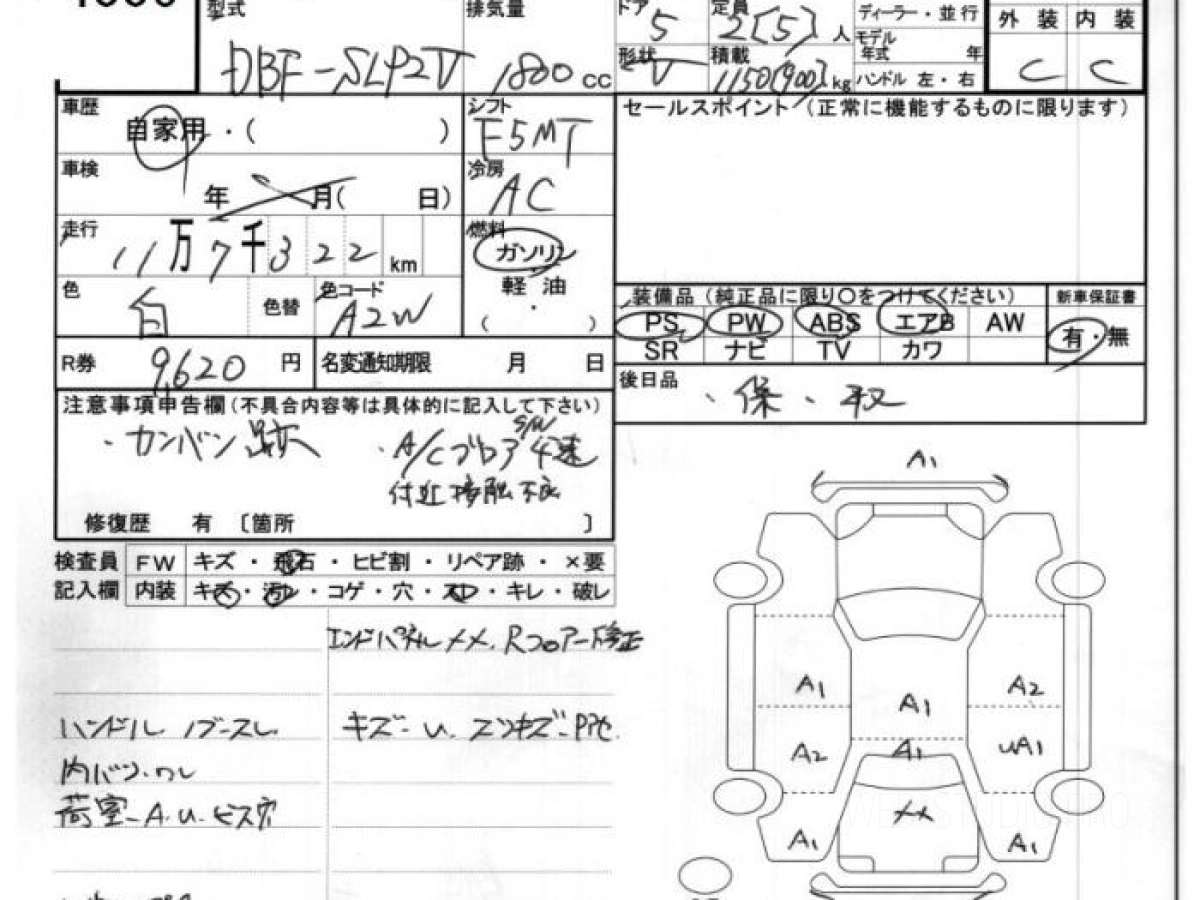 型式 排気量 ドア 5 定員 2[5]人 ディーラー・並行 外装 内装
モデル年式 年
DBF-SLP2V 1800cc 形状 V 積載 1150(900)kg ハンドル 左・右 C C
車歴 自家用・( ) シフト F5MT セールスポイント(正常に機能するものに限ります)
車検 年 月( 日) 冷房 AC
走行 11万7千322km 燃料 ガソリン
軽油
・
( )
色 白 色替 色コード A2W
装備品(純正品に限り○をつけてください) 新車保証書
PS PW ABS エアB AW 有・無
SR ナビ TV カワ
R券 9,620円 名変通知期限 月 日
後日品 ・保・取
注意事項申告欄(不具合内容等は具体的に記入して下さい)
・カンバン跡 ・A/Cブロア S/W 4速
付近接触不良
修復歴 有 〔箇所 〕
検査員 FW キズ・飛石・ヒビ割・リペア跡・×要
記入欄 内装 キズ・汚れ・コゲ・穴・スレ・キレ・破レ
エンドパネルXX. Rフロアー修正
ハンドル
キズ-U.
内バリ・ワレ
荷室-A.U.ビス穴
A1
A1 A1 A2
A2 A1 UA1
XX
A1 A1